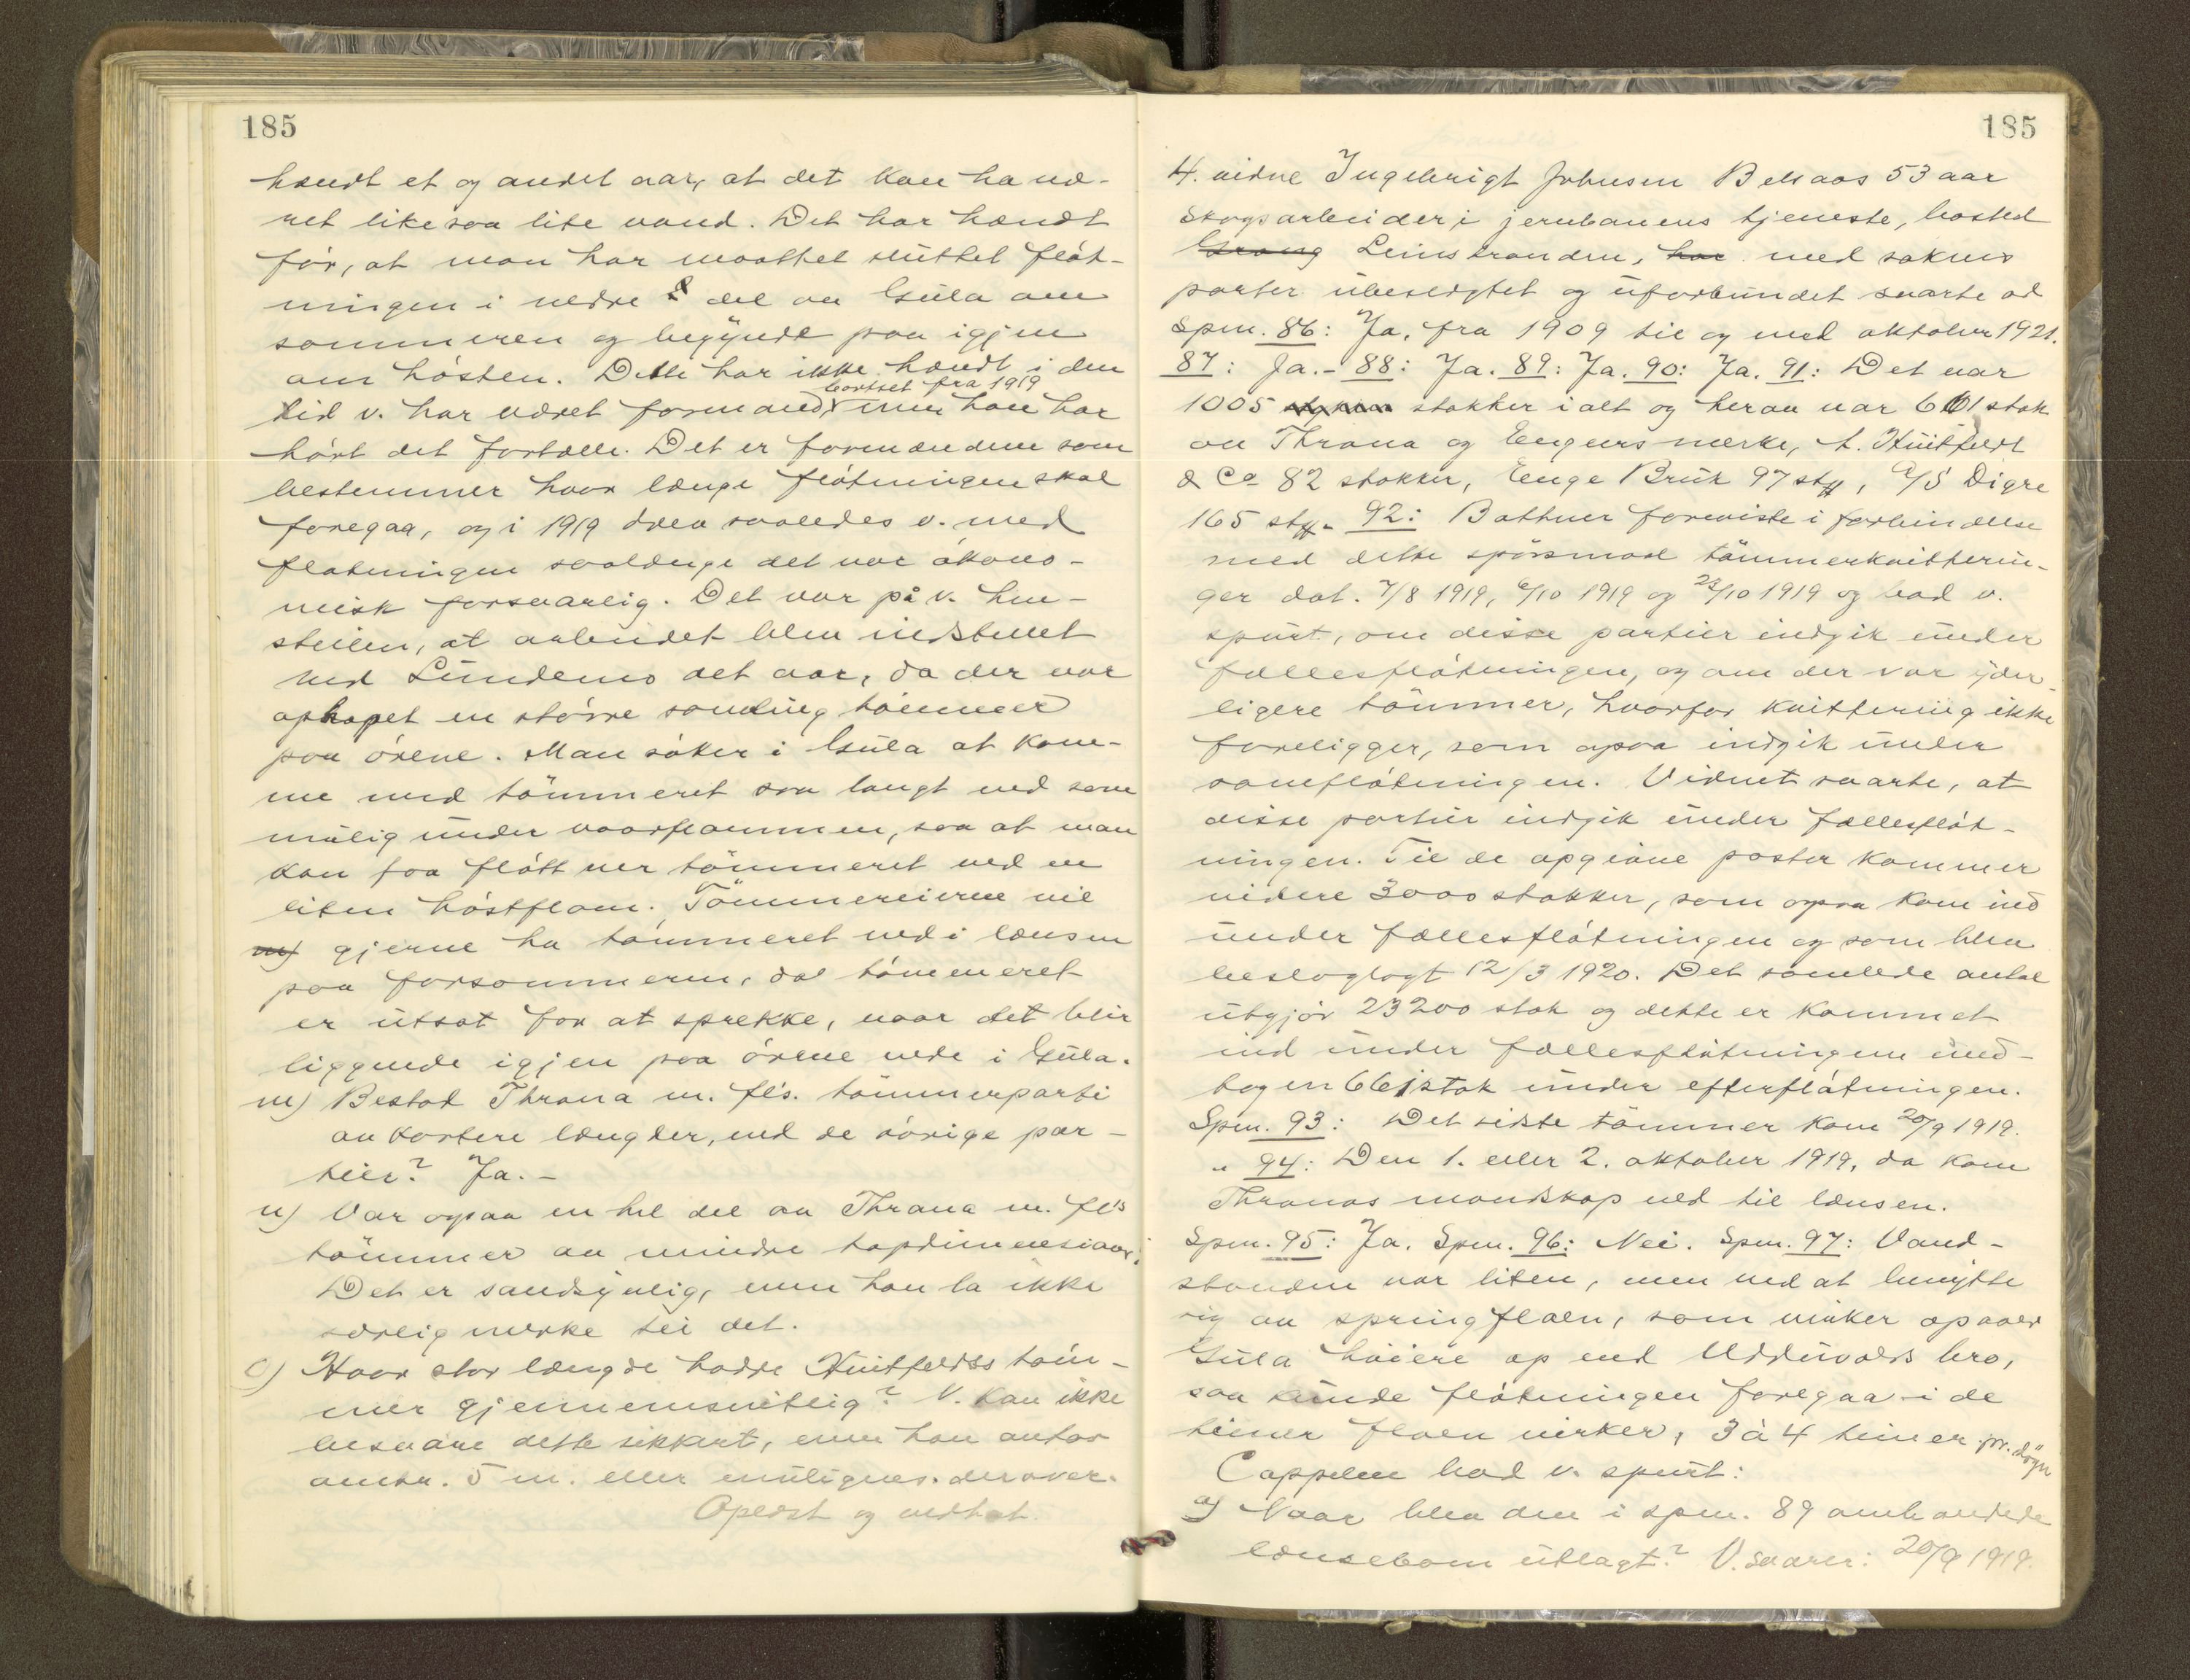 185
hændt et og andet aar, at det kan ha væ-
ret likesaa lite vand. Det har hændt
för, at man har maattet sluttet flöt-
ningen i nedre del av Gula om
sommeren og begyndt paa igjen
om hösten. Dette har ikke hændt i den
bortset fra 1919
tid v. har været formand, men han har
hört det fortælle. Det er formændene som
bestemmer hvor længe flötningen skal
foregaa, og i 1919 drev saaledes v. med
flötningen saalænge det var ökono-
misk forsvarlig. Det var på v. hen-
stillen, at arbeidet blev indstillet
ved Lundemo det aar, da der var
ophopet en större samling tömmer
paa örene. Man söker i Gula at kom-
me med tömmeret saa langt ned som
mulig under vaarflommen, saa at man
kan faa flött ner tömmeret ved en
liten höstflom. Tömmereierne vil
m) gjerne ha tömmeret ned i lænsen
paa forsommeren, da tömmeret
er utsat for at sprekke, naar det blir
liggende igjen paa örene nede i Gula.
m) Bestod Thrana m. fl's. tömmerparti
av kortere længder, end de övrige par-
tier? Ja. -
n) Var ogsaa en hel del av Thrana m. fl's
tömmer av mindre topdimensioner?
Det er sandsynlig, men han la ikke
særlig merke til det.
o) Hvor stor længde hadde Huitfeldts töm-
mer gjennemsnitlig? V. kan ikke
besvare dette sikkert, men han antar
omtr. 5 m. eller muligens derover.
Oplæst og vedtat.
185
4. vidne Ingebrigt Johnsen Belsaas 53 aar
skogsarbeider i jernbanens tjeneste, bosted
Grong Leinstranden, har med sakens
parter ubeslegtet og uforbundet svarte ad
Spm. 86: Ja, fra 1909 til og med oktober 1921.
87: Ja. - 88: Ja. 89: Ja. 90: Ja. 91: Det var
1005 stokker i alt og herav var 661 stok
av Thrana og Engens merke, A. Huitfeldt
& Co 82 stokker, Enge Bruk 97 stk, A/S Digre
165 stk. 92: Bathner foreviste i forbindelse
med dette spörsmaal tömmerkvitterin-
ger dat. 7/8 1919, 6/10 1919 og 28/10 1919 og bad v.
spurt, om disse partier indgik under
fællesflötningen, og om der var yder-
ligere tömmer, hvorfor kvittering ikke
foreligger, som ogsaa indgik under
samflötningen. Vidnet svarte, at
disse partier indgik under fællesflöt-
ningen. Til de opgivne poster kommer
videre 3000 stokker, som ogsaa kom ind
under fællesflötningen og som blev
beslaglagt 12/3 1920. Det samlede antal
utgjör 23200 stok og dette er kommet
ind under fællesflötningen und-
tagen 661 stok under efterflötningen.
Spm. 93: Det sidste tömmer kom 20/9 1919.
" 94: Den 1. eller 2. oktober 1919, da kom
Thranas mandskap ned til lænsen.
Spm. 95: Ja. Spm. 96: Nei. Spm. 97: Vand-
standen var liten, men ved at benytte
sig av springfloen, som virker opover
Gula höiere op end Udduvolds bro,
saa kunde flötningen foregaa i de
timer floen virker, 3 à 4 timer pr. dögn
Cappelen bad v. spurt:
a) Naar blev den i spm. 89 omhandlede
lænsebom utlagt? V. svarer: 20/9 1919.